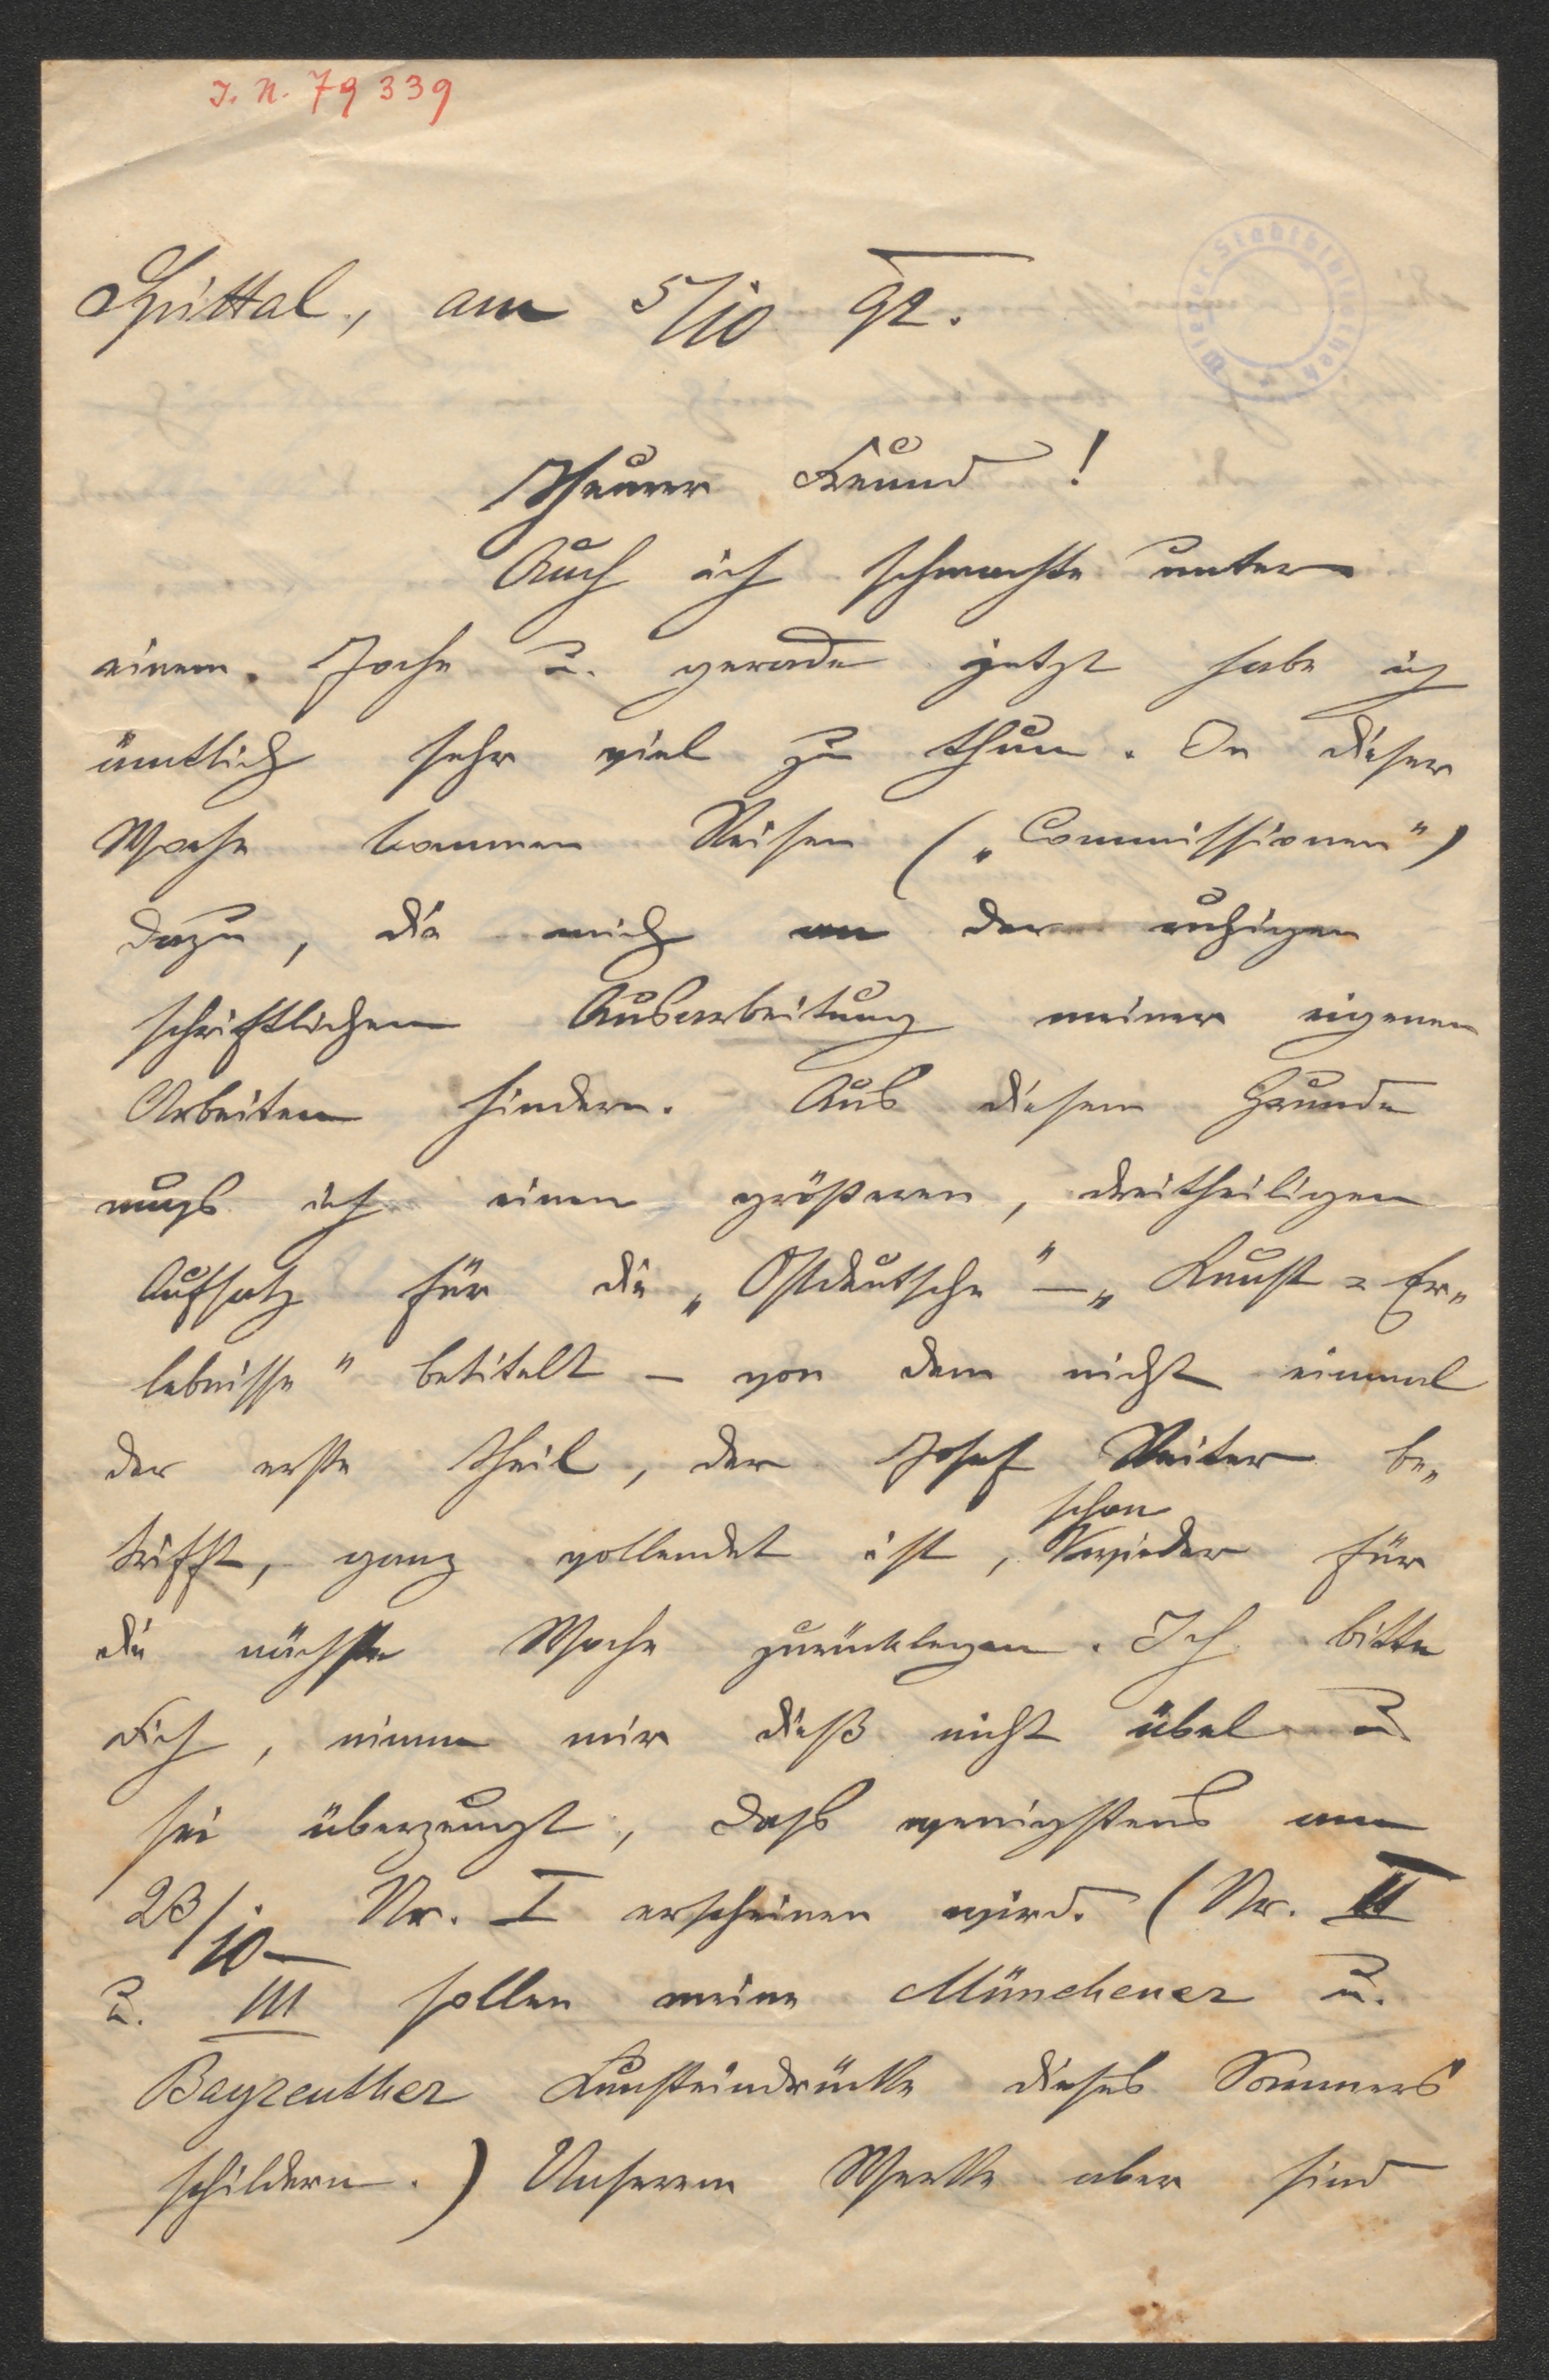 J. N. 79339
Wiener Stadtbibliothek
Spittal, am 5/10 92.
Theurer Freund!
Auch ich schmachte unter
einem Joche u. gerade jetzt habe ich
ämtlich sehr viel zu thun. In dieser
Woche kommen Reisen („Commissionen")
dazu, die mich an der ruhigen
schriftlichen Ausarbeitung meiner eigenen
Arbeiten hindern. Aus diesem Grunde
muß ich einen größeren, dreitheiligen
Aufsatz für die „Ostdeutsche" – „Kunst-Er-
lebnisse" betitelt – von dem nicht einmal
der erste Theil, der Josef Reiter be-
schon
trifft, ganz vollendet ist, wieder für
die nächste Woche zurücklegen. Ich bitte
Dich, nimm mir dieß nicht übel u.
sei überzeugt, daß wenigstens am
23/10 Nr. I erscheinen wird. (Nr. II
u. III sollen meine Münchener u.
Bayreuther Kunsteindrücke dieses Sommers
schildern.) Unserem Werke aber sind